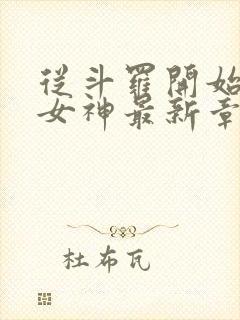 從斗羅開始
女神最新章
杜布瓦